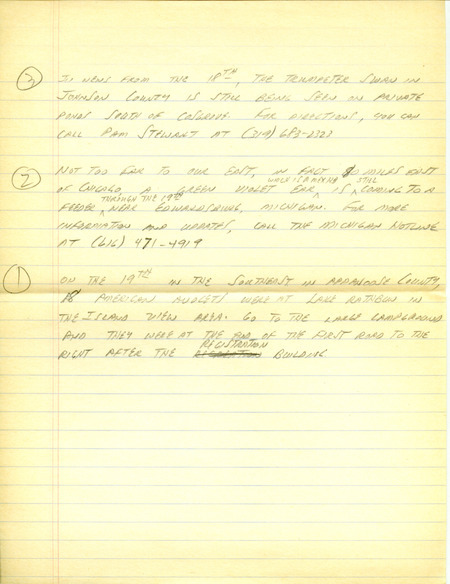 ③ IN NEWS FROM THE 18TH, THE TRUMPETER SWAN IN
JOHNSON COUNTY IS STILL BEING SEEN ON PRIVATE
PONDS SOUTH OF COSGROVE FOR DIRECTIONS, YOU CAN
CALL PAM STEWART AT (319) 683-2321
② NOT TOO FAR TO OUR EAST, IN FACT 80 MILES EAST
WHICH IS A MEXICAN STILL
OF CHICAGO, A GREEN VIOLET EAR IS COMING TO A
THROUGH THE 19TH
FEEDER NEAR EDWARDSBURG, MICHIGAN. FOR MORE
INFORMATION AND UPDATES, CALL THE MICHIGAN HOTLINE
AT (616) 471-4919
① ON THE 19TH IN THE SOUTHEAST IN APPANOOSE COUNTY,
AMERICAN AVOCETS WERE AT LAKE RATHBUN IN
THE ISLAND VIEW AREA. GO TO THE LARGE CAMPGROUND
AND THEY WERE AT THE END OF THE FIRST ROAD TO THE
REGISTRATION
RIGHT AFTER THE BUILDING